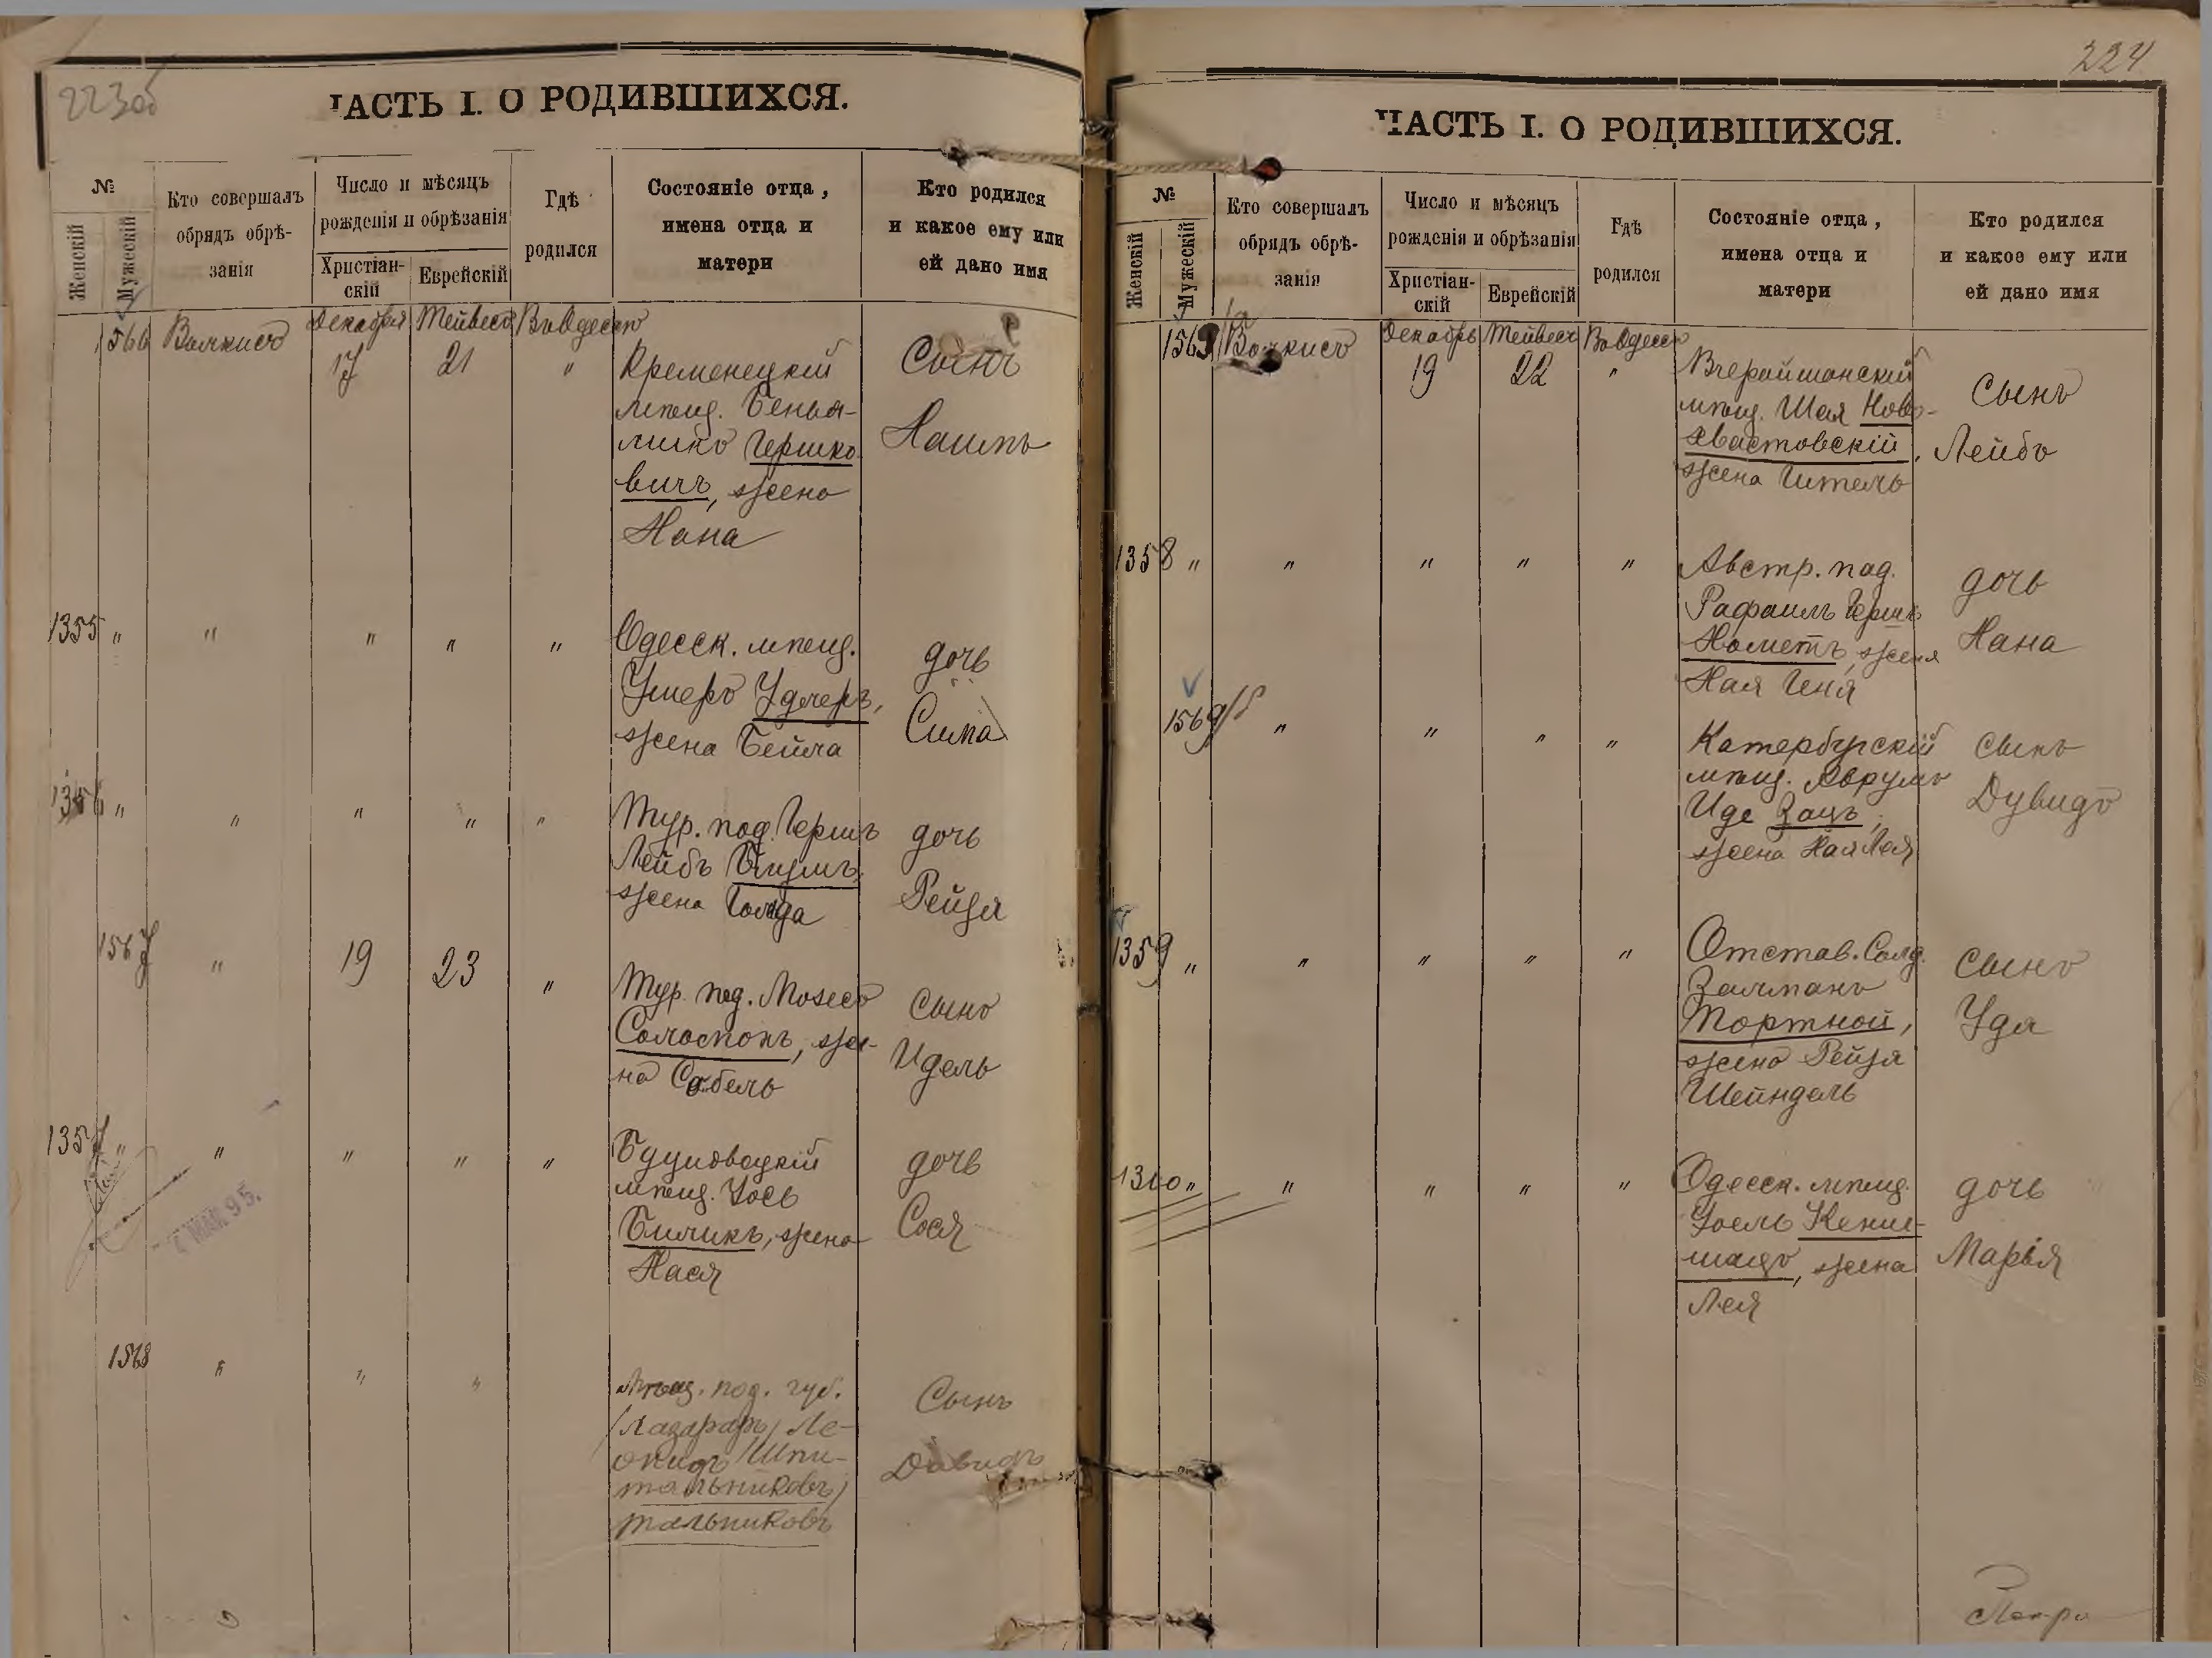 223об
ЧАСТЬ I. О РОДИВШИХСЯ.
№
Женскій
Мужескій
Кто совершалъ
обрядъ обрѣ-
занія
Число и мѣсяцъ
рожденія и обрѣзанія
Христіан-
скій
Еврейскій
Гдѣ
родился
Состояніе отца,
имена отца и
матери
Кто родился
и какое ему или
ей дано имя
1566
Декабря Тейвесъ Въ Одессѣ
17 21 "
Кременецкій
мѣщ. Бенья-
минъ Гершко
вичъ, жена
Хана
Сынъ
1355 " " " " "
Одесск. мѣщ.
Ушеръ Удлеръ,
жена Бейла
дочь
Сима
1356 " " " " "
Тур. под. Гершъ
Лейбъ
жена Голда
дочь
Рейзя
1567 " 19 23 "
Тур. под. Мозесъ
Соломонъ, же-
на
сынъ
Идель
1357 " " " " "
мѣщ. Іось
Биликъ, жена
Хася
дочь
Сося
7 МАЯ 95.
1568 " " "
под.
/Лазарь/ Ле-
онидъ /Шпи-
тальниковъ/
тальниковъ
Сынъ
Давидъ
224
ЧАСТЬ I. О РОДИВШИХСЯ.
№
Женскій
Мужескій
Кто совершалъ
обрядъ обрѣ-
занія
Число и мѣсяцъ
рожденія и обрѣзанія
Христіан-
скій
Еврейскій
Гдѣ
родился
Состояніе отца,
имена отца и
матери
Кто родился
и какое ему или
ей дано имя
1569
Декабрь Тейвесъ Въ Одессѣ
19 22 "
мѣщ. Шая Ново-
хвастовскій,
жена Гитель
Сынъ
Лейбъ
1358 " " " " "
Австр. под.
Рафаилъ Гершъ
жена
Хая Геня
дочь
Хана
1569 " " " "
Катербургскій
мѣщ. Аврумъ
Иде Зацъ,
жена Хая Лея
сынъ
Дувидъ
1359 " " " " "
Отстав. Солд.
Залманъ
Портной,
жена Рейзя
Шейндель
сынъ
Удя
1360 " " " " "
Одесск. мѣщ.
Іоель Кениг-
шацъ, жена
Лея
дочь
Марья